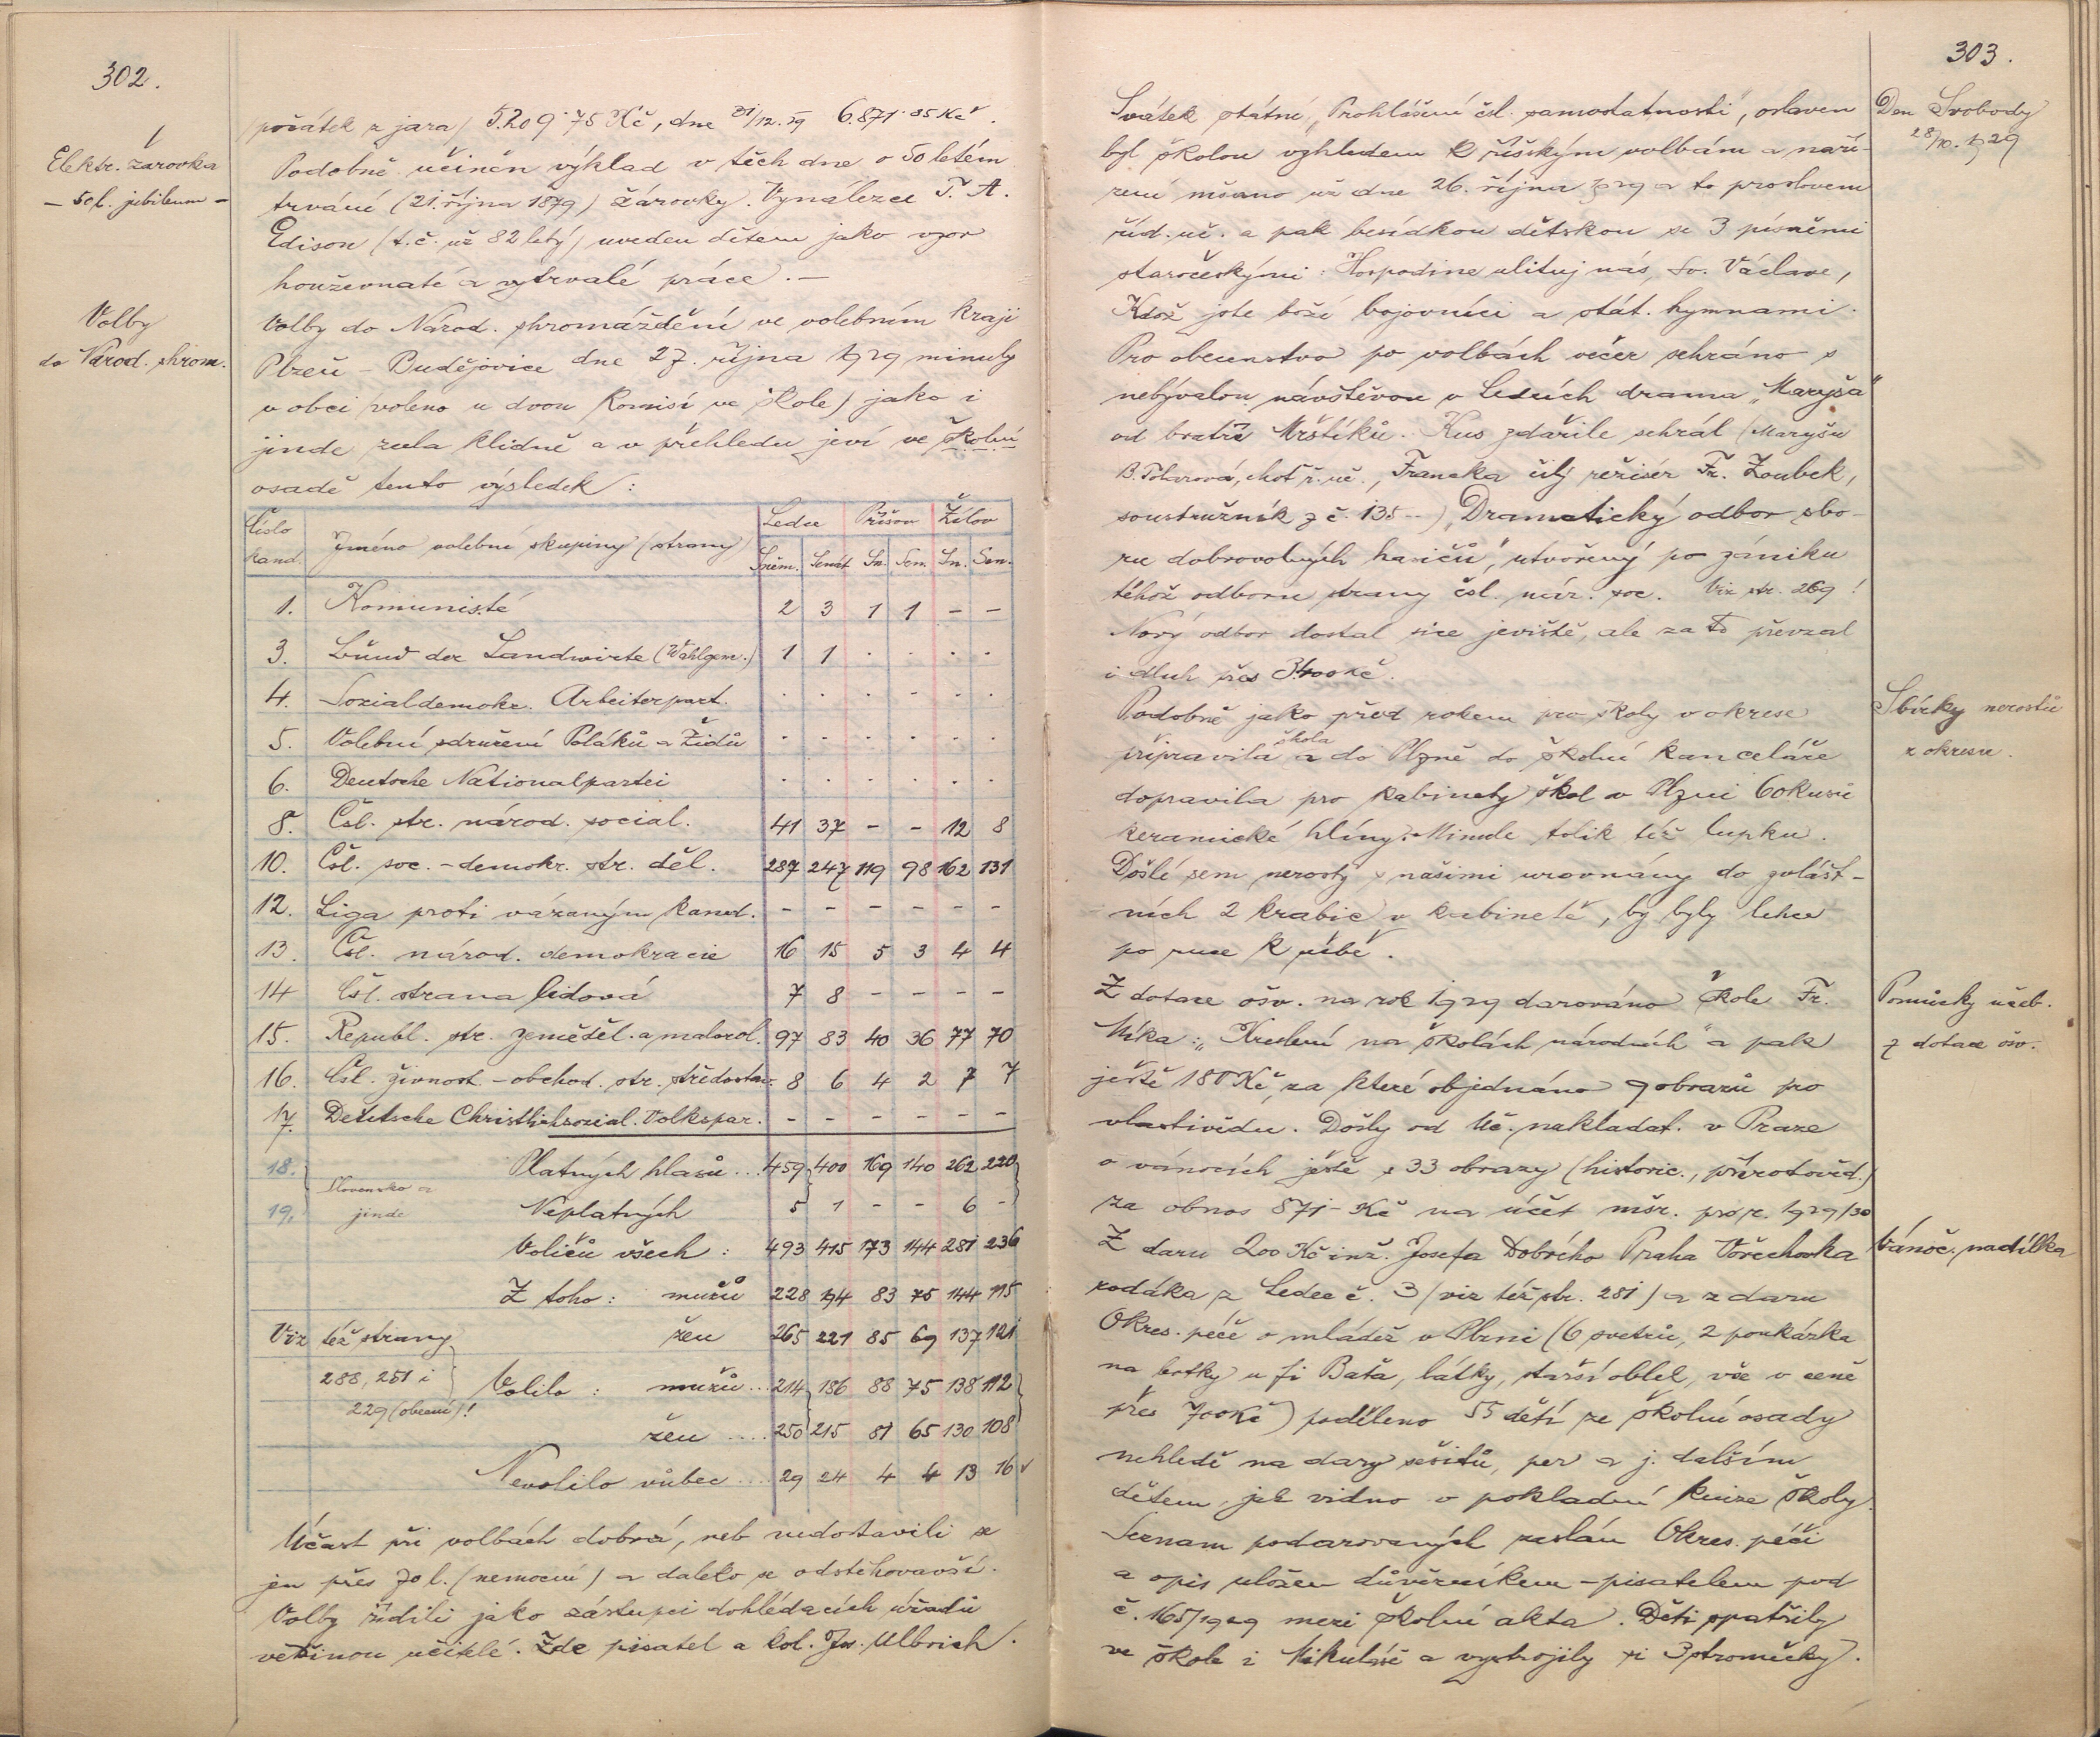 302.
(počátek z jara) 5.209·75 Kč, dne 31/12. 29 6.871·35 Kč.
Elektr. žárovka
– 50 l. jubileum –
Podobně učiněn výklad v těch dne o 50 letém
trvání (21. října 1879) žárovky. Vynálezce T. A.
Edison (t. č. už 82 letý) uveden dětem jako vzor
houževnaté a vytrvalé práce. –
Volby
do Národ. shrom.
Volby do Národ. shromáždění ve volebním kraji
Plzeň – Budějovice dne 27. října 1929 minuly
v obci (voleno u dvou komisí ve škole) jako i
jinde zcela klidně a v přehledu jeví ve školní
osadě tento výsledek:
Číslo kand. Jméno volební skupiny (strany) Ledce Příšov Žilov
Sněm. Senát Sn. Sen. Sn. Sen.
1. Komunisté 2 3 1 1 – –
3. Bund der Landwirte (Wahlgem.) 1 1 . . . .
4. Sozialdemokr. Arbeiterpart. . . . . . .
5. Volební sdružení Poláků a Židů . . . . . .
6. Deutsche Nationalpartei . . . . . .
8. Čsl. str. národ. social. 41 37 – – 12 8
10. Čsl. soc.-demokr. str. děl. 287 247 119 98 162 131
12. Liga proti vázaným kand. – – – – – –
13. Čsl. národ. demokracie 16 15 5 3 4 4
14 Čsl. strana lidová 7 8 – – – –
15. Republ. str. zeměděl. a malorol. 97 83 40 36 77 70
16. Čsl. živnost.-obchod. str. středostav. 8 6 4 2 7 7
17. Deutsche Christlichsozial. Volkspar. – – – – – –
18. Platných hlasů ... 459 400 169 140 262 220
Slovensko a
19. jinde Neplatných 5 1 – – 6 –
Voličů všech: 493 415 173 144 281 236
Z toho: mužů 228 194 83 75 144 115
Viz též strany žen 265 221 85 69 137 121
288, 251 i Volilo: mužů ... 214 186 88 75 138 112
229 (obecní)!
žen .... 250 215 81 65 130 108
Nevolilo vůbec .... 29 24 4 4 13 16
Účast při volbách dobrá, neb nedostavili se
jen přes 70 l. (nemocní) a daleko se odstěhovavší.
Volby řídili jako zástupci dohlédacích úřadů
většinou učitelé. Zde pisatel a kol. Jos. Ulbrich.
303.
Den Svobody
28/10. 1929
Svátek státní „Prohlášení čsl. samostatnosti", oslaven
byl školou vzhledem k říšským volbám a naří-
zení mšano už dne 26. října 1929 a to proslovem
říd. uč. a pak besídkou dětskou se 3 písněmi
staročeskými: Hospodine ulituj nás, Sv. Václave,
Kdož jste boží bojovníci a stát. hymnami.
Pro obecenstvo po volbách večer sehráno s
nebývalou návštěvou v Ledcích drama „Maryša"
od bratří Mrštíků. Kus zdařile sehrál (Maryšu
B. Tolarová, choť ř. uč., Francka čilý režisér Fr. Zoubek,
soustružník z č. 135 --) „Dramatický odbor sbo-
ru dobrovolných hasičů", utvořený po zániku
téhož odboru strany čsl. nár. soc. Viz str. 269!
Nový odbor dostal sice jeviště, ale za to převzal
i dluh přes 3400 Kč.
Sbírky nerostů
z okresu.
Podobně jako před rokem pro školy v okrese
připravila škola a do Plzně do školní kanceláře
dopravila pro kabinety škol v Plzni 60 kusů
keramické hlíny. Minule tolik též lupku.
Došlé sem nerosty s našimi urovnány do zvlášt-
ních 2 krabic v kabinetě, by byly lehce
po ruce k užbě.
Pomůcky učeb.
z dotace osv.
Z dotace osv. na rok 1929 darováno škole Fr.
Mika: „Kreslení na školách národních" a pak
ještě 180 Kč, za které objednáno 9 obrazů pro
vlastivědu. Došly od Uč. nakladat. v Praze
o vánocích ještě s 33 obrazy (historic., přírodověd.)
za obnos 871– Kč na účet mšr. pro r. 1929/30
Vánoč. nadílka
Z daru 200 Kč inž. Josefa Dobrého Praha Vořechovka
rodáka z Ledec č. 3 (viz též str. 281) a z daru
Okres. péče o mládež v Plzni (6 svetrů, 2 poukázka
na botky u fi Baťa, látky, starší oblek, vše v ceně
přes 700 Kč) poděleno 55 dětí ze školní osady
nehledě na dary sešitů, per a j. dalším
dětem, jak vidno v pokladní knize školy.
Seznam podarovaných zaslán Okres. péči
a opis uložen důvěrníkem – pisatelem pod
č. 165/1929 mezi školní akta. Děti spatřily
ve škole i Mikuláše a vystrojily si 3 stromečky.